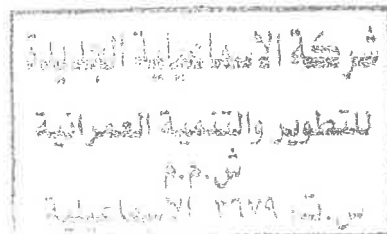 شركة الإسماعيلية الجديدة
للتطوير والتنمية العمرانية
ش.م.م
س.ت: ٢٩٧٩ الإسماعيلية